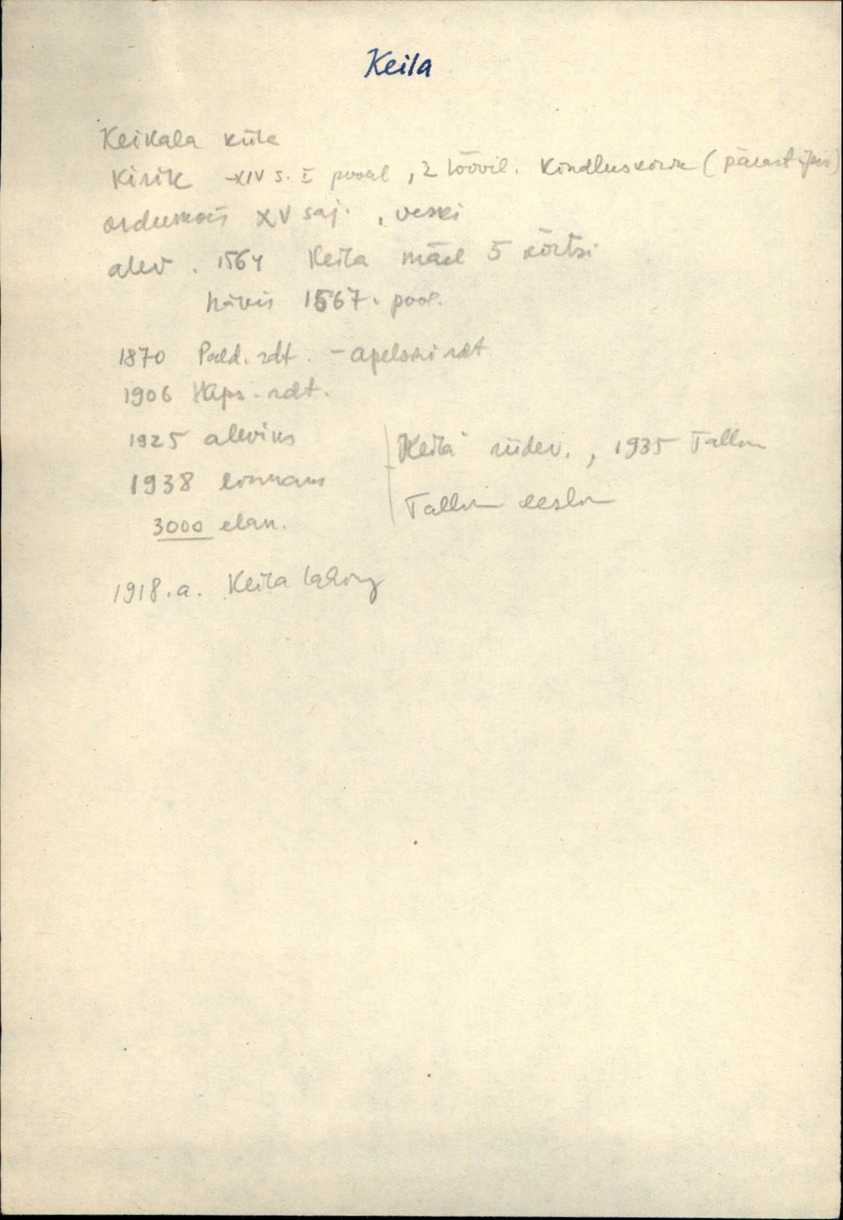 Keila
Keikala küla
Kirik - XIV s. I pool, 2 löövil. Kindluskirik (pärast
ordumõis XV saj., veski
alev. 1564 Keila mäel 5 kõrtsi
hävis 1567. pool.
1870 Pald. rdt. - apelsini rdt
1906 Haps. rdt.
1925 alevins
1938 linnans
"Keila" riidev., 1935 Tallinn
Tallinn eeslin
3000 elan.
1918.a. Keila lahing